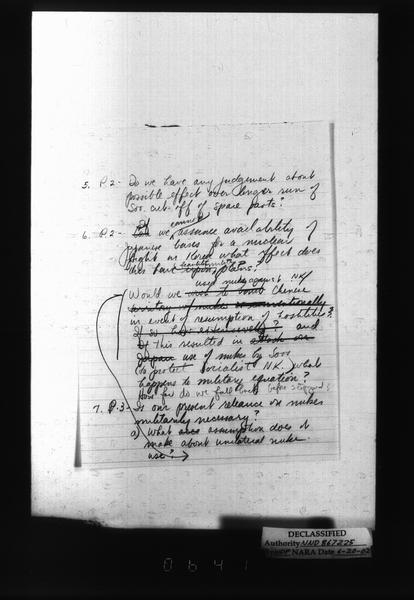 5. P.2- Do we have any judgement about
possible effect over longer run of
Sov. cut-off of spare parts?
6. P.2- If we cannot assume availability of
Japanese bases for a nuclear
fight in Korea what effect does
this have plans?
used nukes against NK/
Would we Chinese
in event of resumption of hostilities?
If so how extensively? and
If this resulted in
use of nukes by Sovs
(to protect socialist NK.) what
happens to military equation?
How far do we fall back before stopping?
7. P.3- Is our present reliance on nukes
militarily necessary?
a) What assumption does it
make about unilateral nuke
use?
DECLASSIFIED
Authority NND 867225
NARA Date 6-20-02
0641